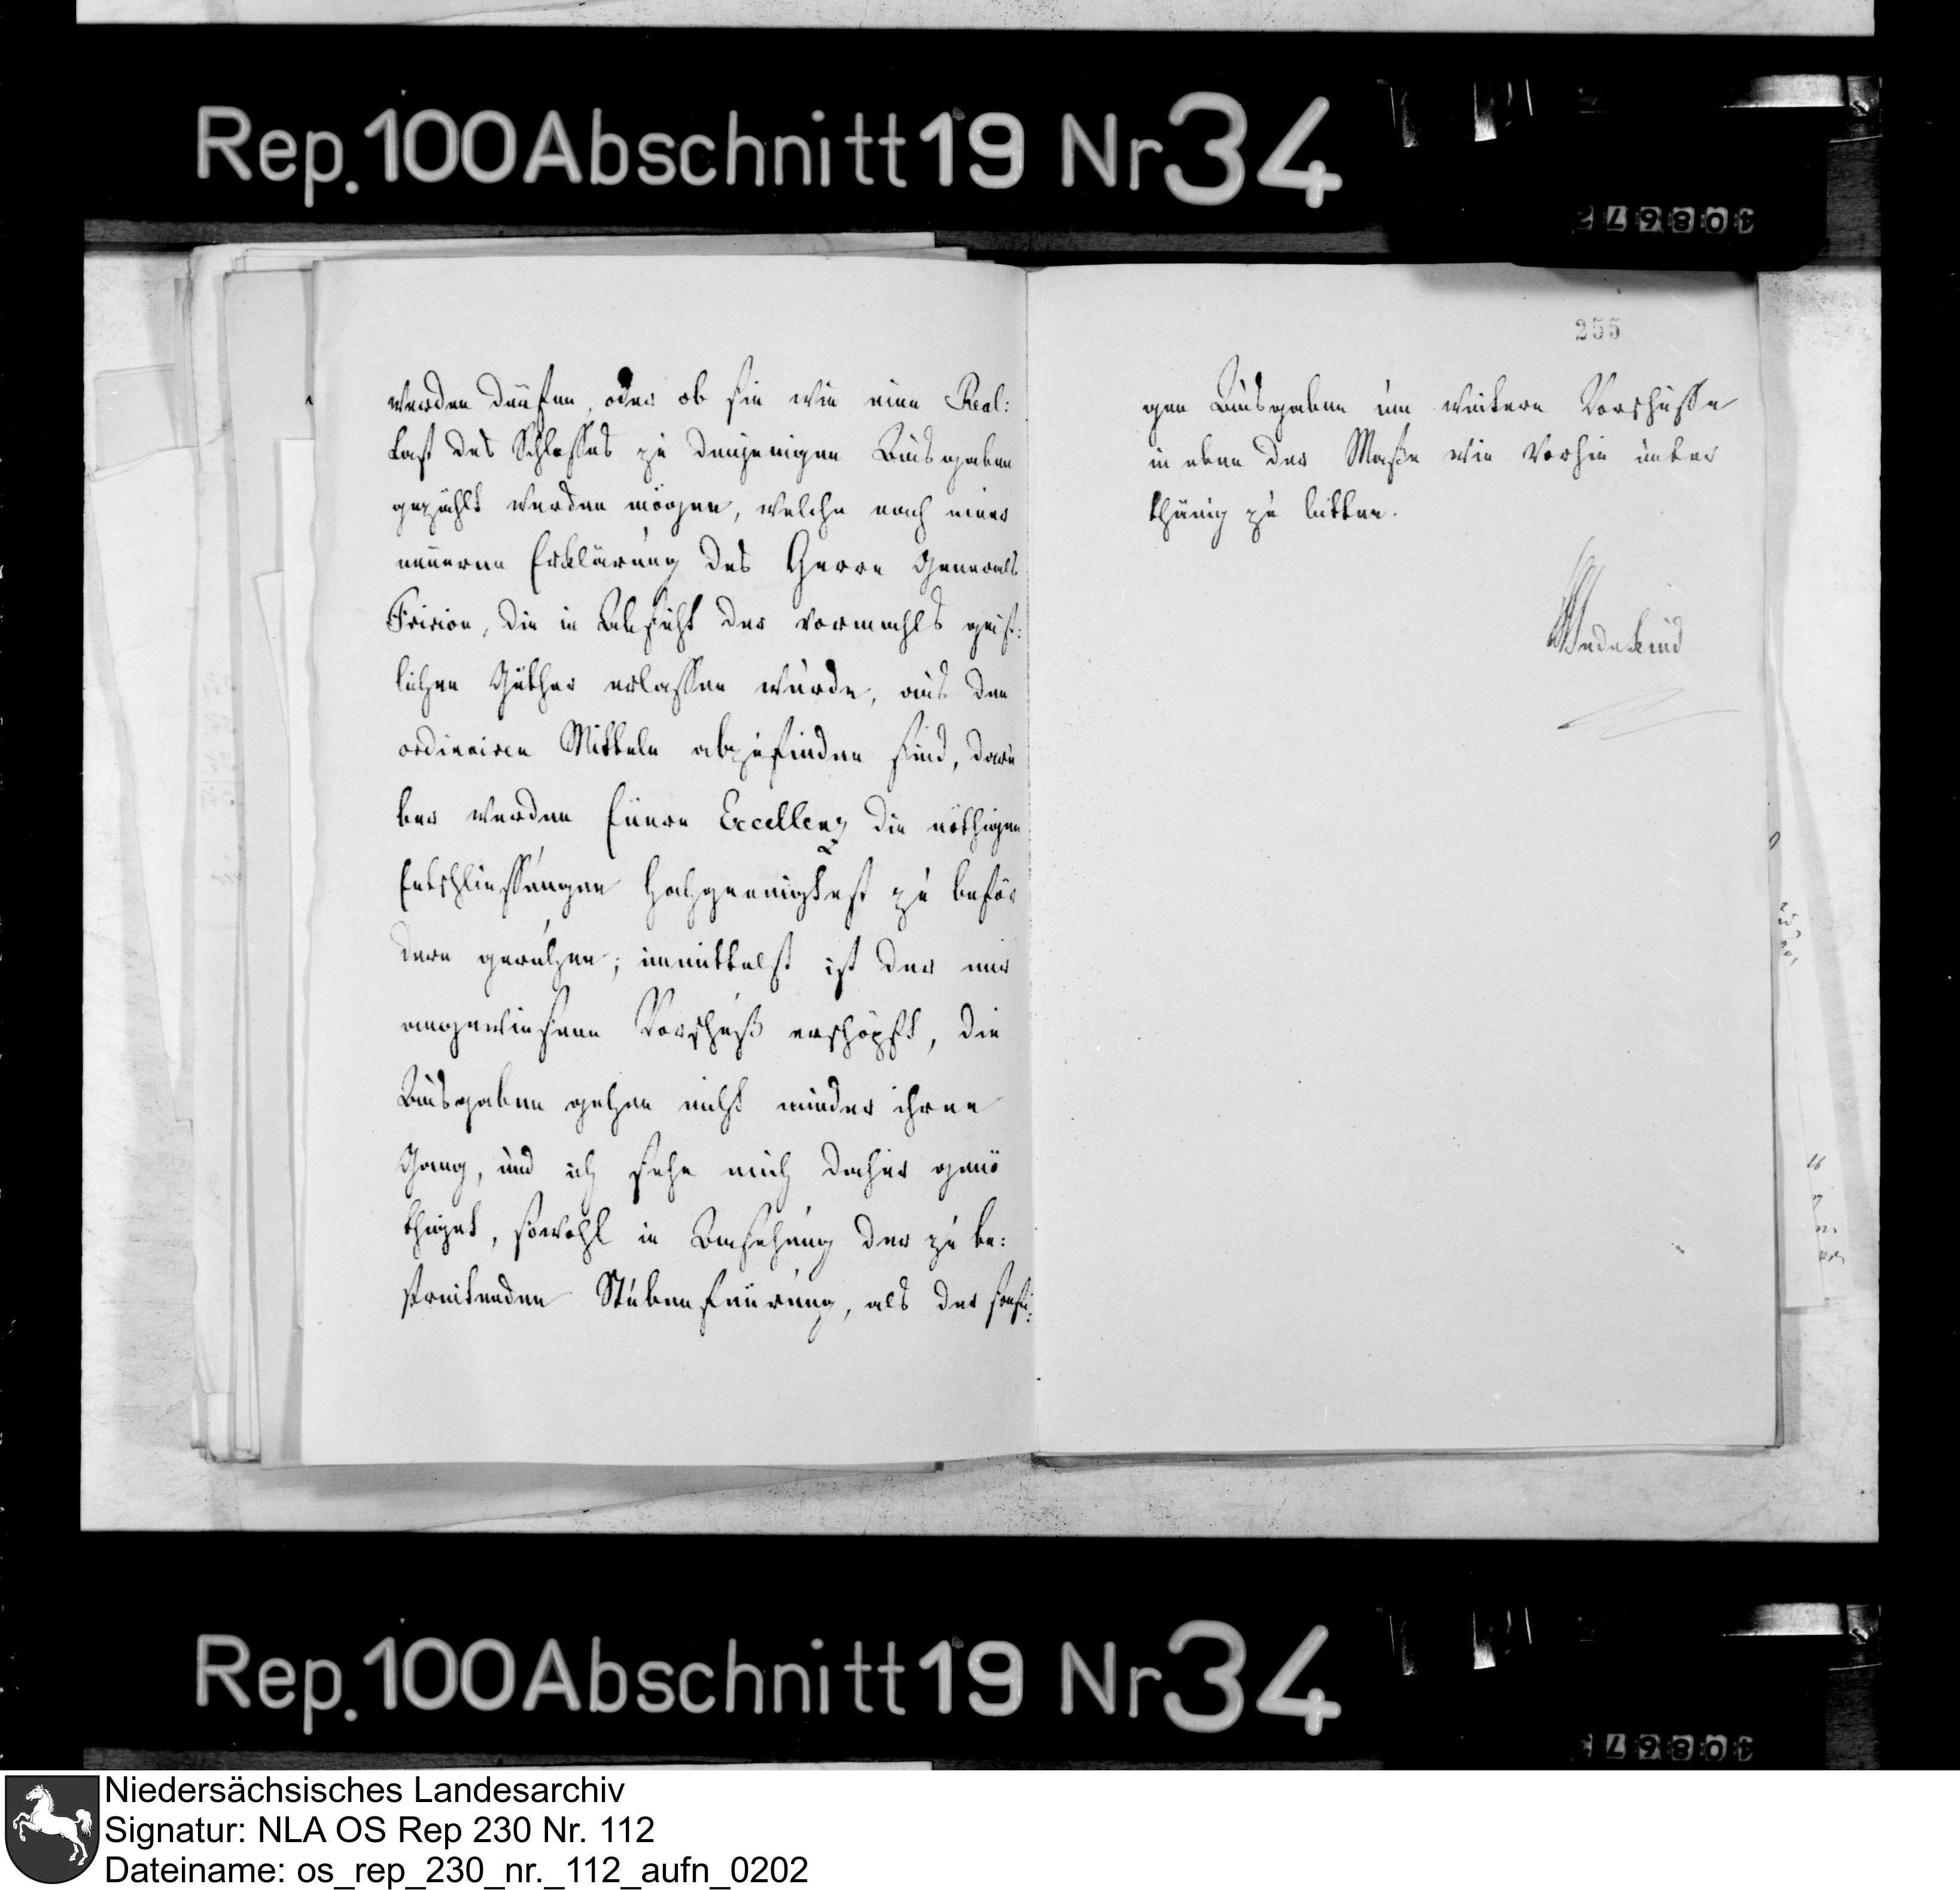 Rep. 100 Abschnitt 19 Nr 34
werden dürfen, oder ob sie wie eine Real:
Last des Schlosses zu denjenigen Ausgaben
gezählt werden mögen, welche nach einer
neuern Erklärung des Herrn Generals
Fririon, die in Absicht der vormahls geist:
lichen Güther erlassen wurde, aus den
ordinairen Mitteln abzufinden sind, darü
ber werden Euere Excellenz die nöthigen
Entschliessungen Hochgeneigtest zu beför
dern geruhen; immittelst ist der mir
angewiesene Vorschuß erschöpft, die
Ausgaben gehen nicht minder ihren
Gang, und ich sehe mich daher genö
thiget, sowohl in Ansehung der zu be:
streitenden Stubenfeürung, als der sonsti:
255
gen Ausgaben um weitere Vorschüsse
in eben der Maße wie vorhin unter
thänig zu bitten.
Wedekind
Rep. 100 Abschnitt 19 Nr 34
Niedersächsisches Landesarchiv
Signatur: NLA OS Rep 230 Nr. 112
Dateiname: os_rep_230_nr._112_aufn_0202